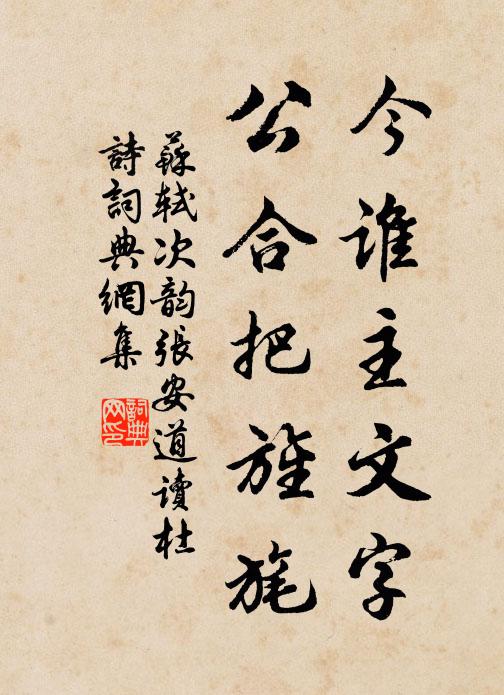 今谁主文字
公合把旌旄
蘇軾次韵張安道讀杜
詩詞典網集
詞典网印